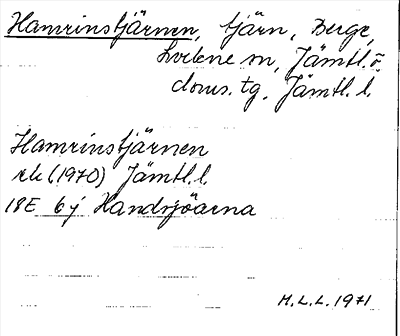 Hamrinstjärnen, tjärn, Berge,
Hovdene sn, Jämtl.ö.
doms. tg, Jämtl. l.
Hamrinstjärnen
rk (1970) Jämtl. l.
18E 6j Handsjöarna
M.L.L. 1971